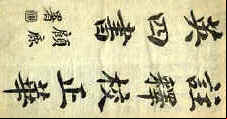 註釋校正華
英四書
顧 署